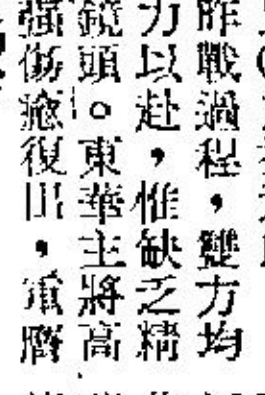 昨戰過程，雙方均
力以赴，惟缺乏精
鏡頭。東華主將高
強傷癒復出，重膺